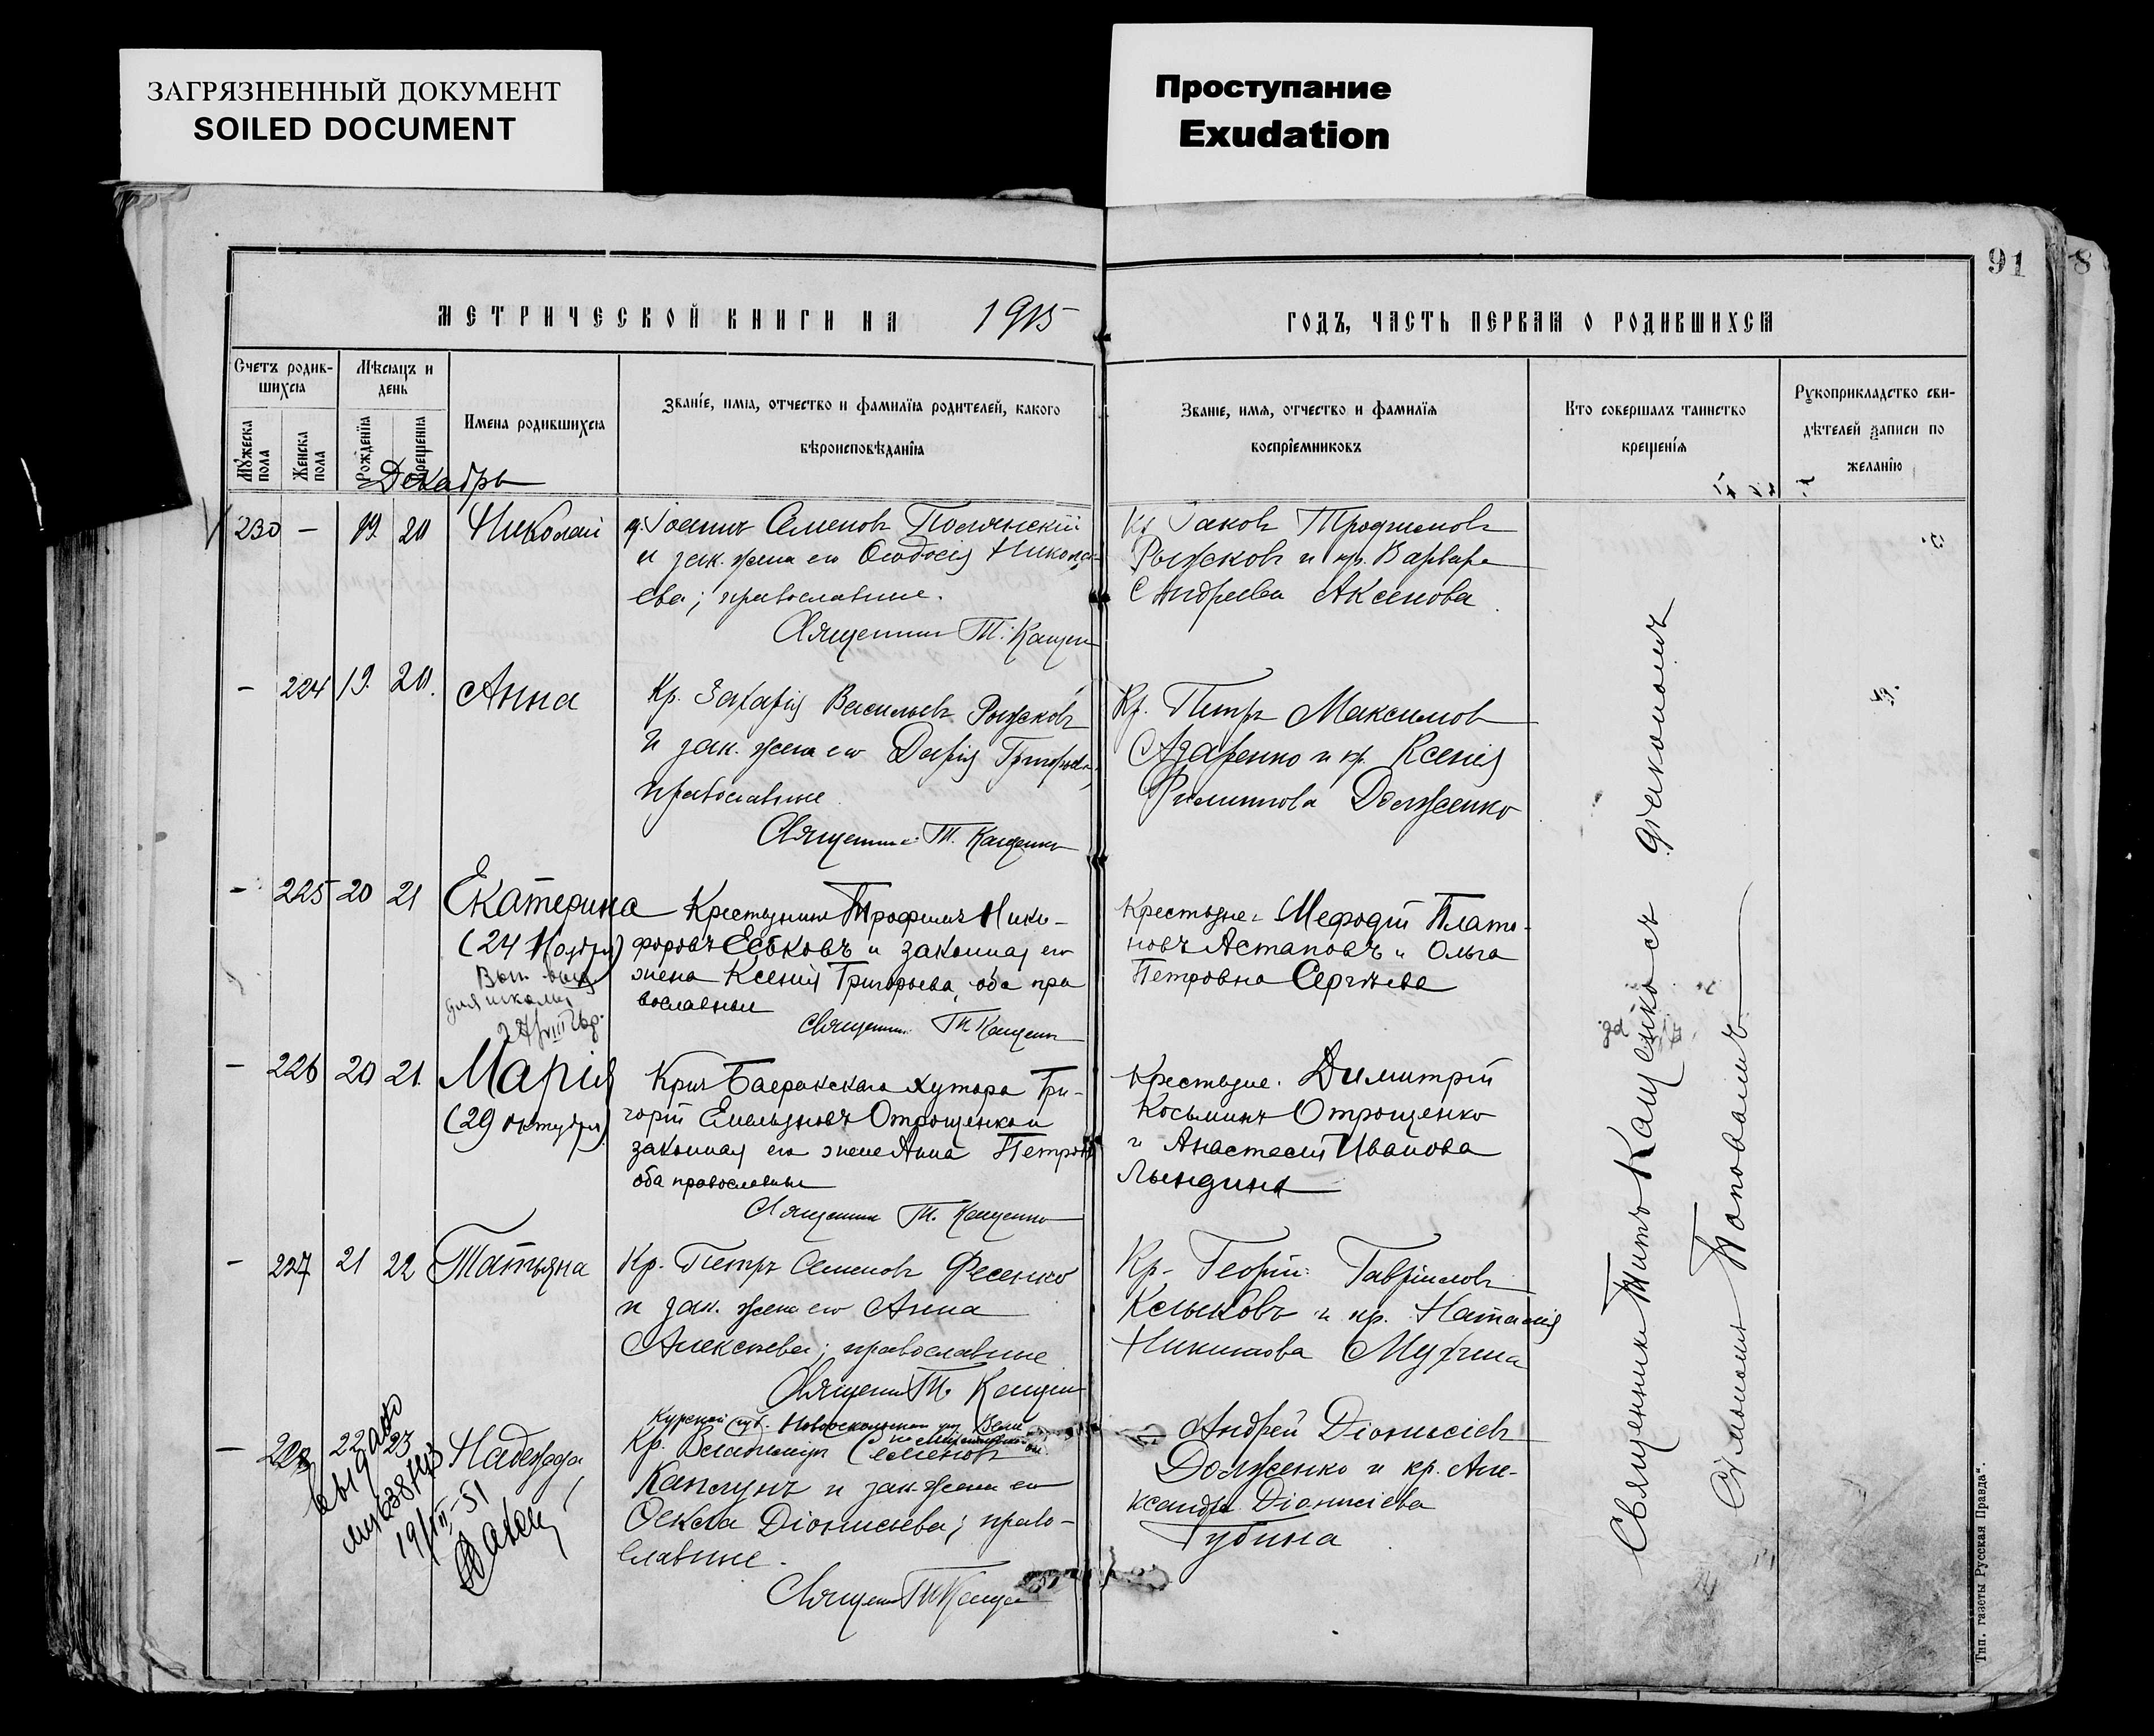 ЗАГРЯЗНЕННЫЙ ДОКУМЕНТ
SOILED DOCUMENT
Проступание
Exudation
91
8
МЕТРИЧЕСКОЙ КНИГИ НА 1915
ГОДЪ, ЧАСТЬ ПЕРВАЯ О РОДИВШИХСЯ
Счетъ родив-
шихся
Мѣсяцъ и
день
Мужеска
пола
Женска
пола
Рожденія
Крещенія
Имена родившихся
Званіе, имя, отчество и фамилія родителей, какого
вѣроисповѣданія
Званіе, имя, отчество и фамилія
воспріемниковъ
Кто совершалъ таинство
крещенія
Рукоприкладство сви-
дѣтелей записи по
желанію
Декабрь
230 — 19. 20 Николай
Іоаннъ Семеновъ Полянскій
и зак. жена его Ѳеодосія Никола-
ева; православные.
Священникъ Т. Кащен
Кр Іаковъ Трофимовъ
Рыжковъ и кр. Варвара
Андреева Аксенова
— 224 19. 20. Анна
Кр. Захарія Васильевъ Рыжковъ
и зак. жена его Дарія Григорьева,
православные
Священник Т. Кащенко
Кр. Петръ Максимовъ
Азаренко и кр. Ксенія
Филиппова Долженко
— 225 20 21 Екатерина
(24 Ноября)
для школы
Крестьянинъ Трофимъ Ники-
форовъ Есѣковъ и законная его
жена Ксенія Григорьева, оба пра
вославные
Священник Т Кащенко
Крестьяне: Мефодій Плато-
новъ Астаповъ и Ольга
Петровна Сергѣева
— 226 20 21. Марія
(29 октября)
Крнъ Баеракскаго хутора Гри-
горій Емельяновъ Отрощенко и
законная его жена Анна Петрова
оба православные
Священник Т. Кащенко
Крестьяне: Димитрій
Косьминъ Отрощенко
и Анастасія Иванова
Лындина
— 227 21 22 Татьяна
Кр. Петръ Семеновъ Фесенко
и зак. жена его Анна
Алексѣева; православные
Священ Т. Кащен
Кр. Георгій Гавріиловъ
и кр. Наталія
Никитова Мухина
— 228 22 23 Надежда
19/VII-51
Курской губ. Новооскольскаго
Кр. Владиміръ Семеновъ
Каплунъ и зак. жена его
Ѳекла Діонисьева; право-
славные.
Священ Т Кащен
Андрей Діонисіевъ
Долженко и кр. Але-
ксандра Діонисіева
Губина
Священникъ Титъ Кащенко съ діакономъ
Поповымъ
Тип. газеты Русская Правда".